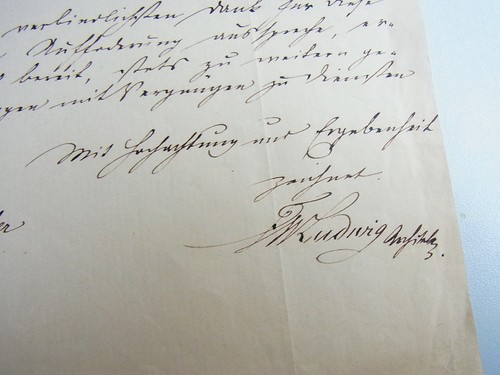 verbindlichsten Dank für diese
Aufforderung ausspreche, er-
bereit, stets zu weitern ge-
gen mit Vergnügen zu diensten
Mit Hochachtung und Ergebenheit
zeichnet.
Ludwig Architekt.